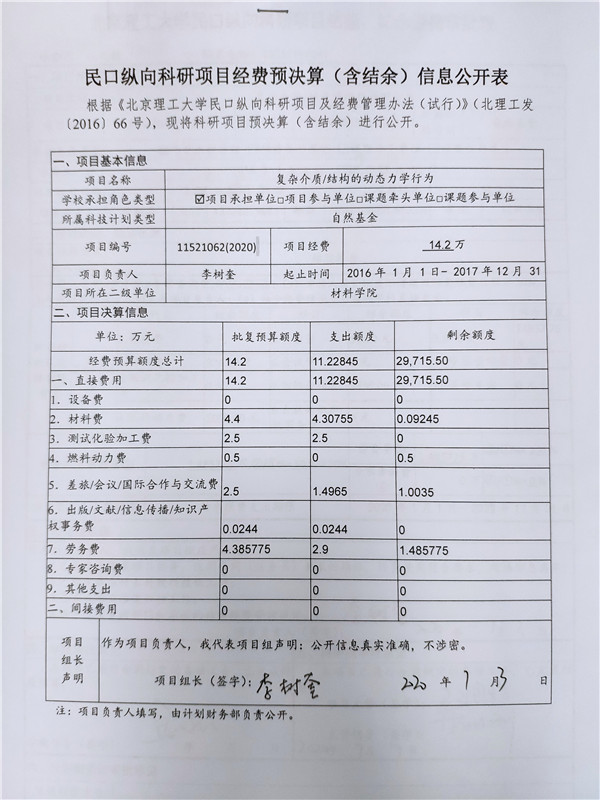 民口纵向科研项目经费预决算（含结余）信息公开表
根据《北京理工大学民口纵向科研项目及经费管理办法（试行）》（北理工发
〔2016〕66 号），现将科研项目预决算（含结余）进行公开。
一、项目基本信息
项目名称 复杂介质/结构的动态力学行为
学校承担角色类型 ☑项目承担单位□项目参与单位□课题牵头单位□课题参与单位
所属科技计划类型 自然基金
项目编号 11521062(2020) 项目经费 14.2 万
项目负责人 李树奎 起止时间 2016 年 1 月 1 日- 2017 年 12 月 31
项目所在二级单位 材料学院
二、项目决算信息
单位：万元 批复预算额度 支出额度 剩余额度
经费预算额度总计 14.2 11.22845 29,715.50
一、直接费用 14.2 11.22845 29,715.50
1．设备费 0 0 0
2．材料费 4.4 4.30755 0.09245
3．测试化验加工费 2.5 2.5 0
4．燃料动力费 0.5 0 0.5
5．差旅/会议/国际合作与交流费 2.5 1.4965 1.0035
6．出版/文献/信息传播/知识产
权事务费 0.0244 0.0244 0
7．劳务费 4.385775 2.9 1.485775
8．专家咨询费 0 0 0
9．其他支出 0 0 0
二、间接费用 0 0 0
项目
组长
声明
作为项目负责人，我代表项目组声明：公开信息真实准确，不涉密。
项目组长（签字）：李树奎 2020 年 1 月 3 日
注：项目负责人填写，由计划财务部负责公开。